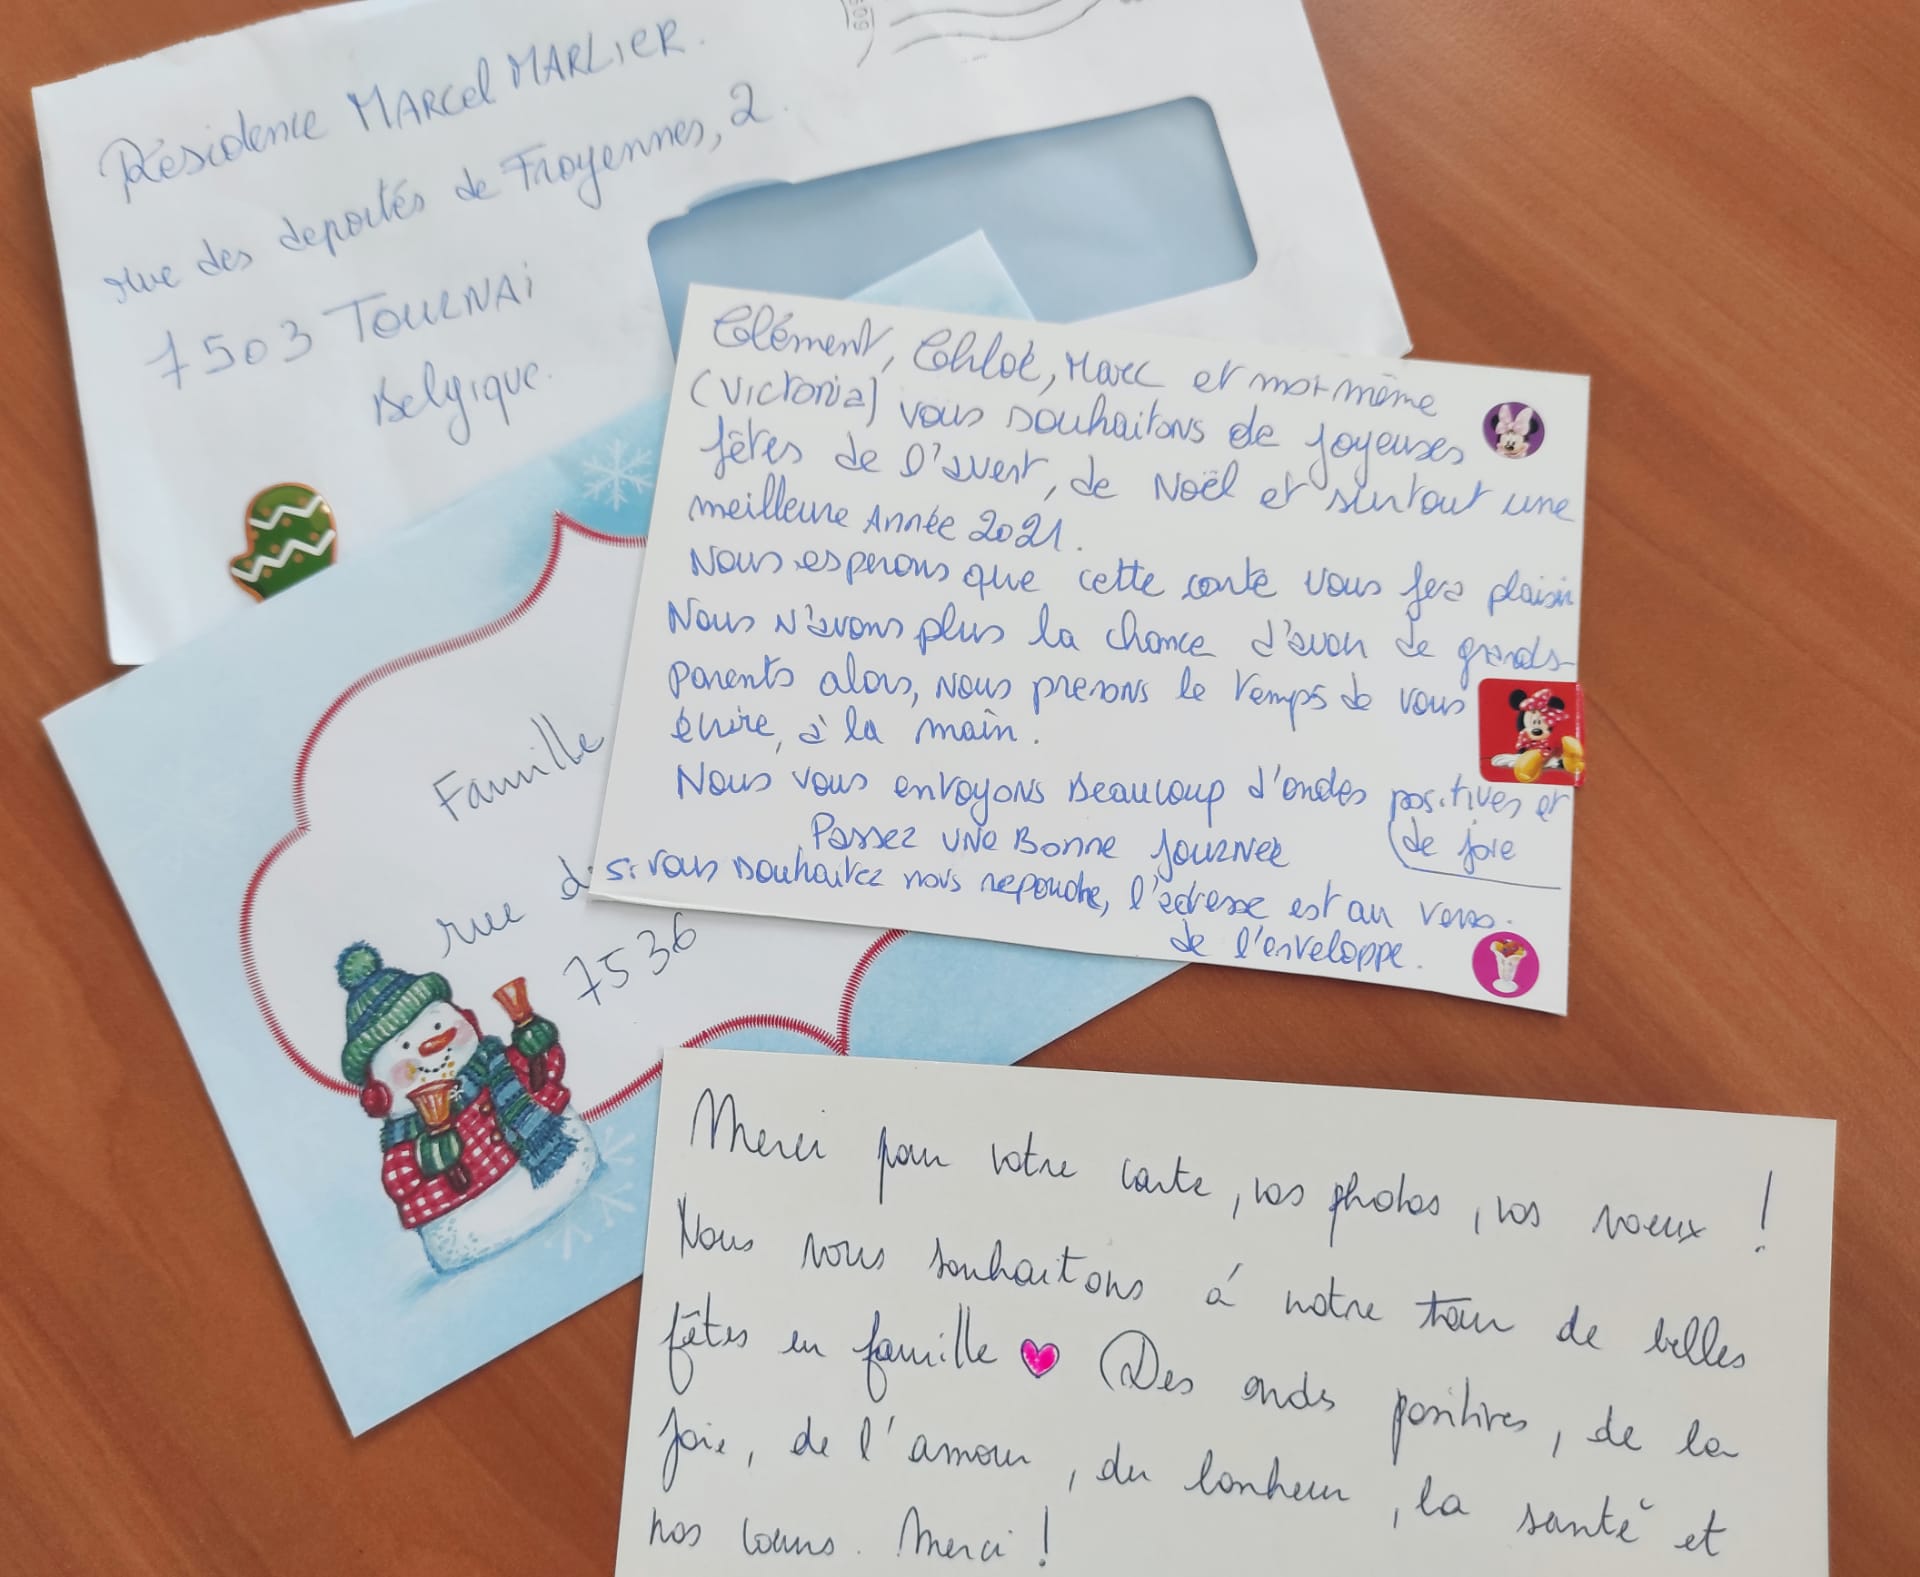 Résidence MARCel MARLIER.
rue des deportés de Froyennes, 2.
7503 TOURNAi
Belgique.
Clément, Chloé, Marc et moi-même
(Victoria) vous souhaitons de joyeuses
fêtes de l'avent, de Noël et surtout une
meilleure Année 2021.
Nous esperons que cette carte vous fera plaisir
Nous n'avons plus la chance d'avoir de grands-
parents alors, nous prenons le temps de vous
écrire, à la main.
Nous vous envoyons Beaucoup d'ondes positives et
de joie
Passez une Bonne journee
si vous souhaitez nous repondre, l'adresse est au verso.
de l'enveloppe.
Famille
rue d
7536
Merci pour votre carte, vos photos, vos voeux !
Nous vous souhaitons à notre tour de belles
fêtes en famille Des ondes positives, de la
joie, de l'amour, du bonheur, la santé et
nos coeurs. Merci !